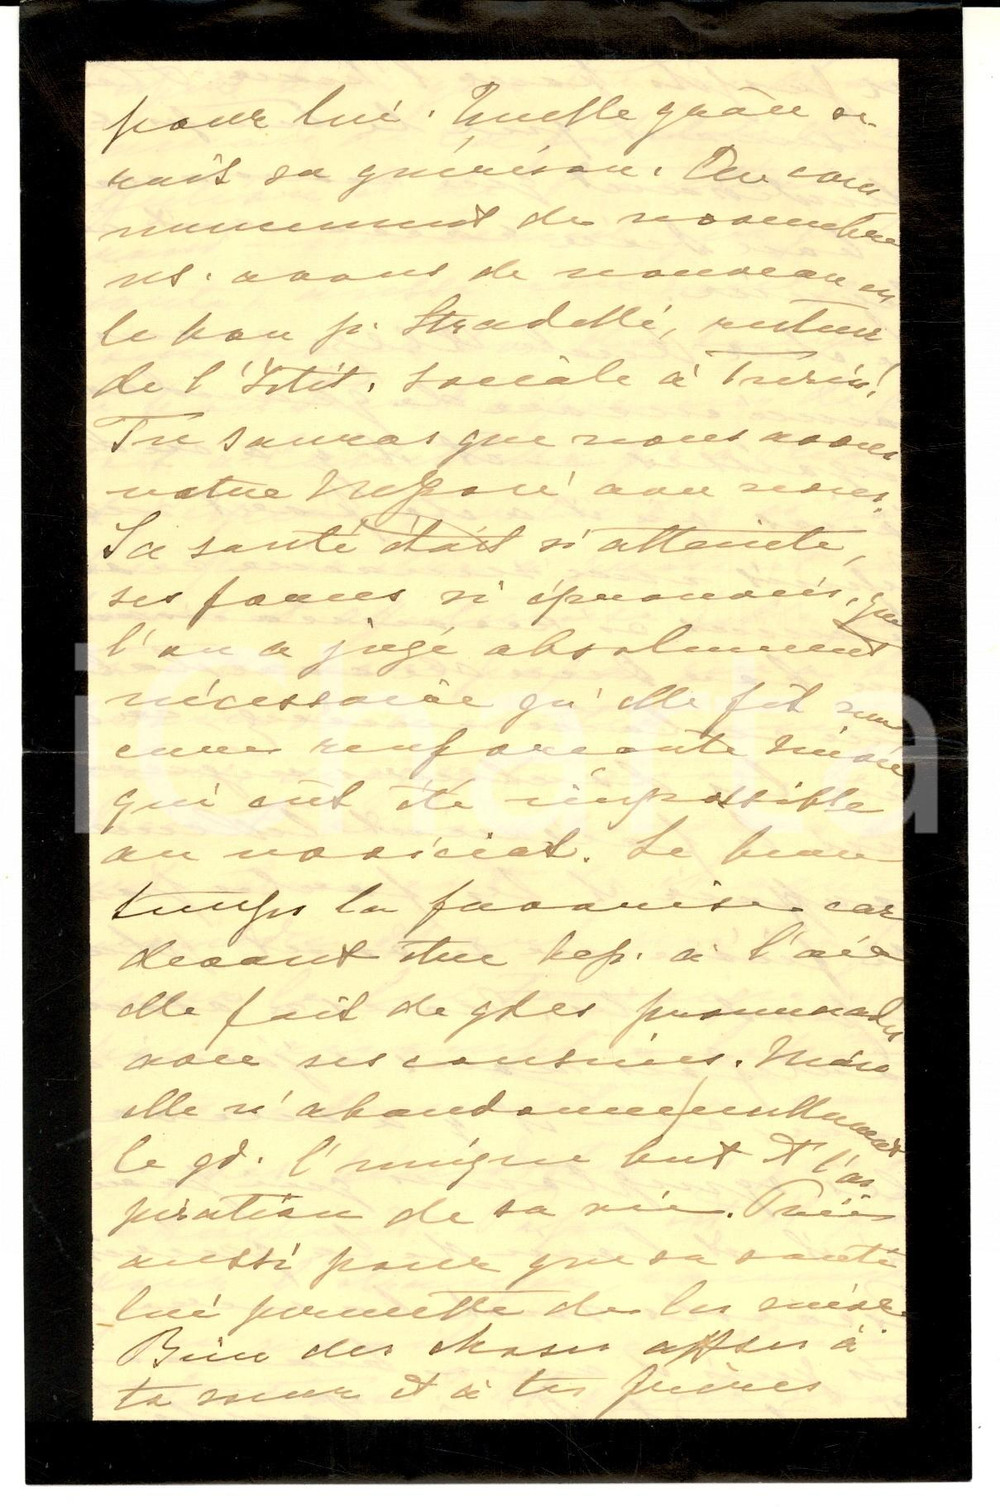 pour lui. Quelle grâce se-
rait sa guérison. Au com
mencement de novembre
ns. avons de nouveau eu
le bon p. Stradelli, recteur
de l'Istit. Sociale à Turin!
Tu sauras que nous avons
notre avec nous.
Sa santé était si atteinte,
ses forces si éprouvées, que
l'on a jugé absolument
nécessaire qu'elle fît une
cure renforçante
qui eut été impossible
au noviciat. Le beau
temps la favorise car
devant être bcp. à l'air
elle fait de gdes promenades
avec ses cousines. Mais
elle n'abandonne nullement
le gd. l'unique but et l'as
piration de sa vie. Priez
aussi pour que sa santé
lui permette de les suivre.
Bien des choses affses à
ta soeur et à tes frères
iCharta